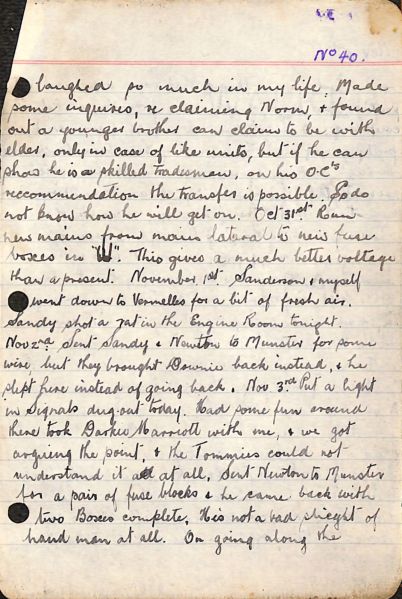 No 40.
laughed so much in my life. Made
some inquires, re claiming Norm, & found
out a younger brother can claim to be with
elder, only in case of like units, but if he can
show he is a skilled tradesman, on his O.C's
recommendation the transfer is possible. So do
not know how he will get on. Oct 31st Run
new mains from main lateral to new fuse
boxes in "W". This gives a much better voltage
than a present. November 1st. Sanderson & myself
went down to Vermelles for a bit of fresh air.
Sandy shot a rat in the Engine Room tonight.
Nov 2nd Sent Sandy & Newton to Munster for some
wire, but they brought Downie back instead, & he
slept here instead of going back. Nov 3rd Put a light
in Signals dug-out today. Had some fun around
there took Darkie Marriott with me, & we got
arguing the point, & the Tommies could not
understand it all at all. Sent Newton to Munster
for a pair of fuse blocks & he came back with
two Boxes complete. His not a bad slieght of
hand man at all. On going along the